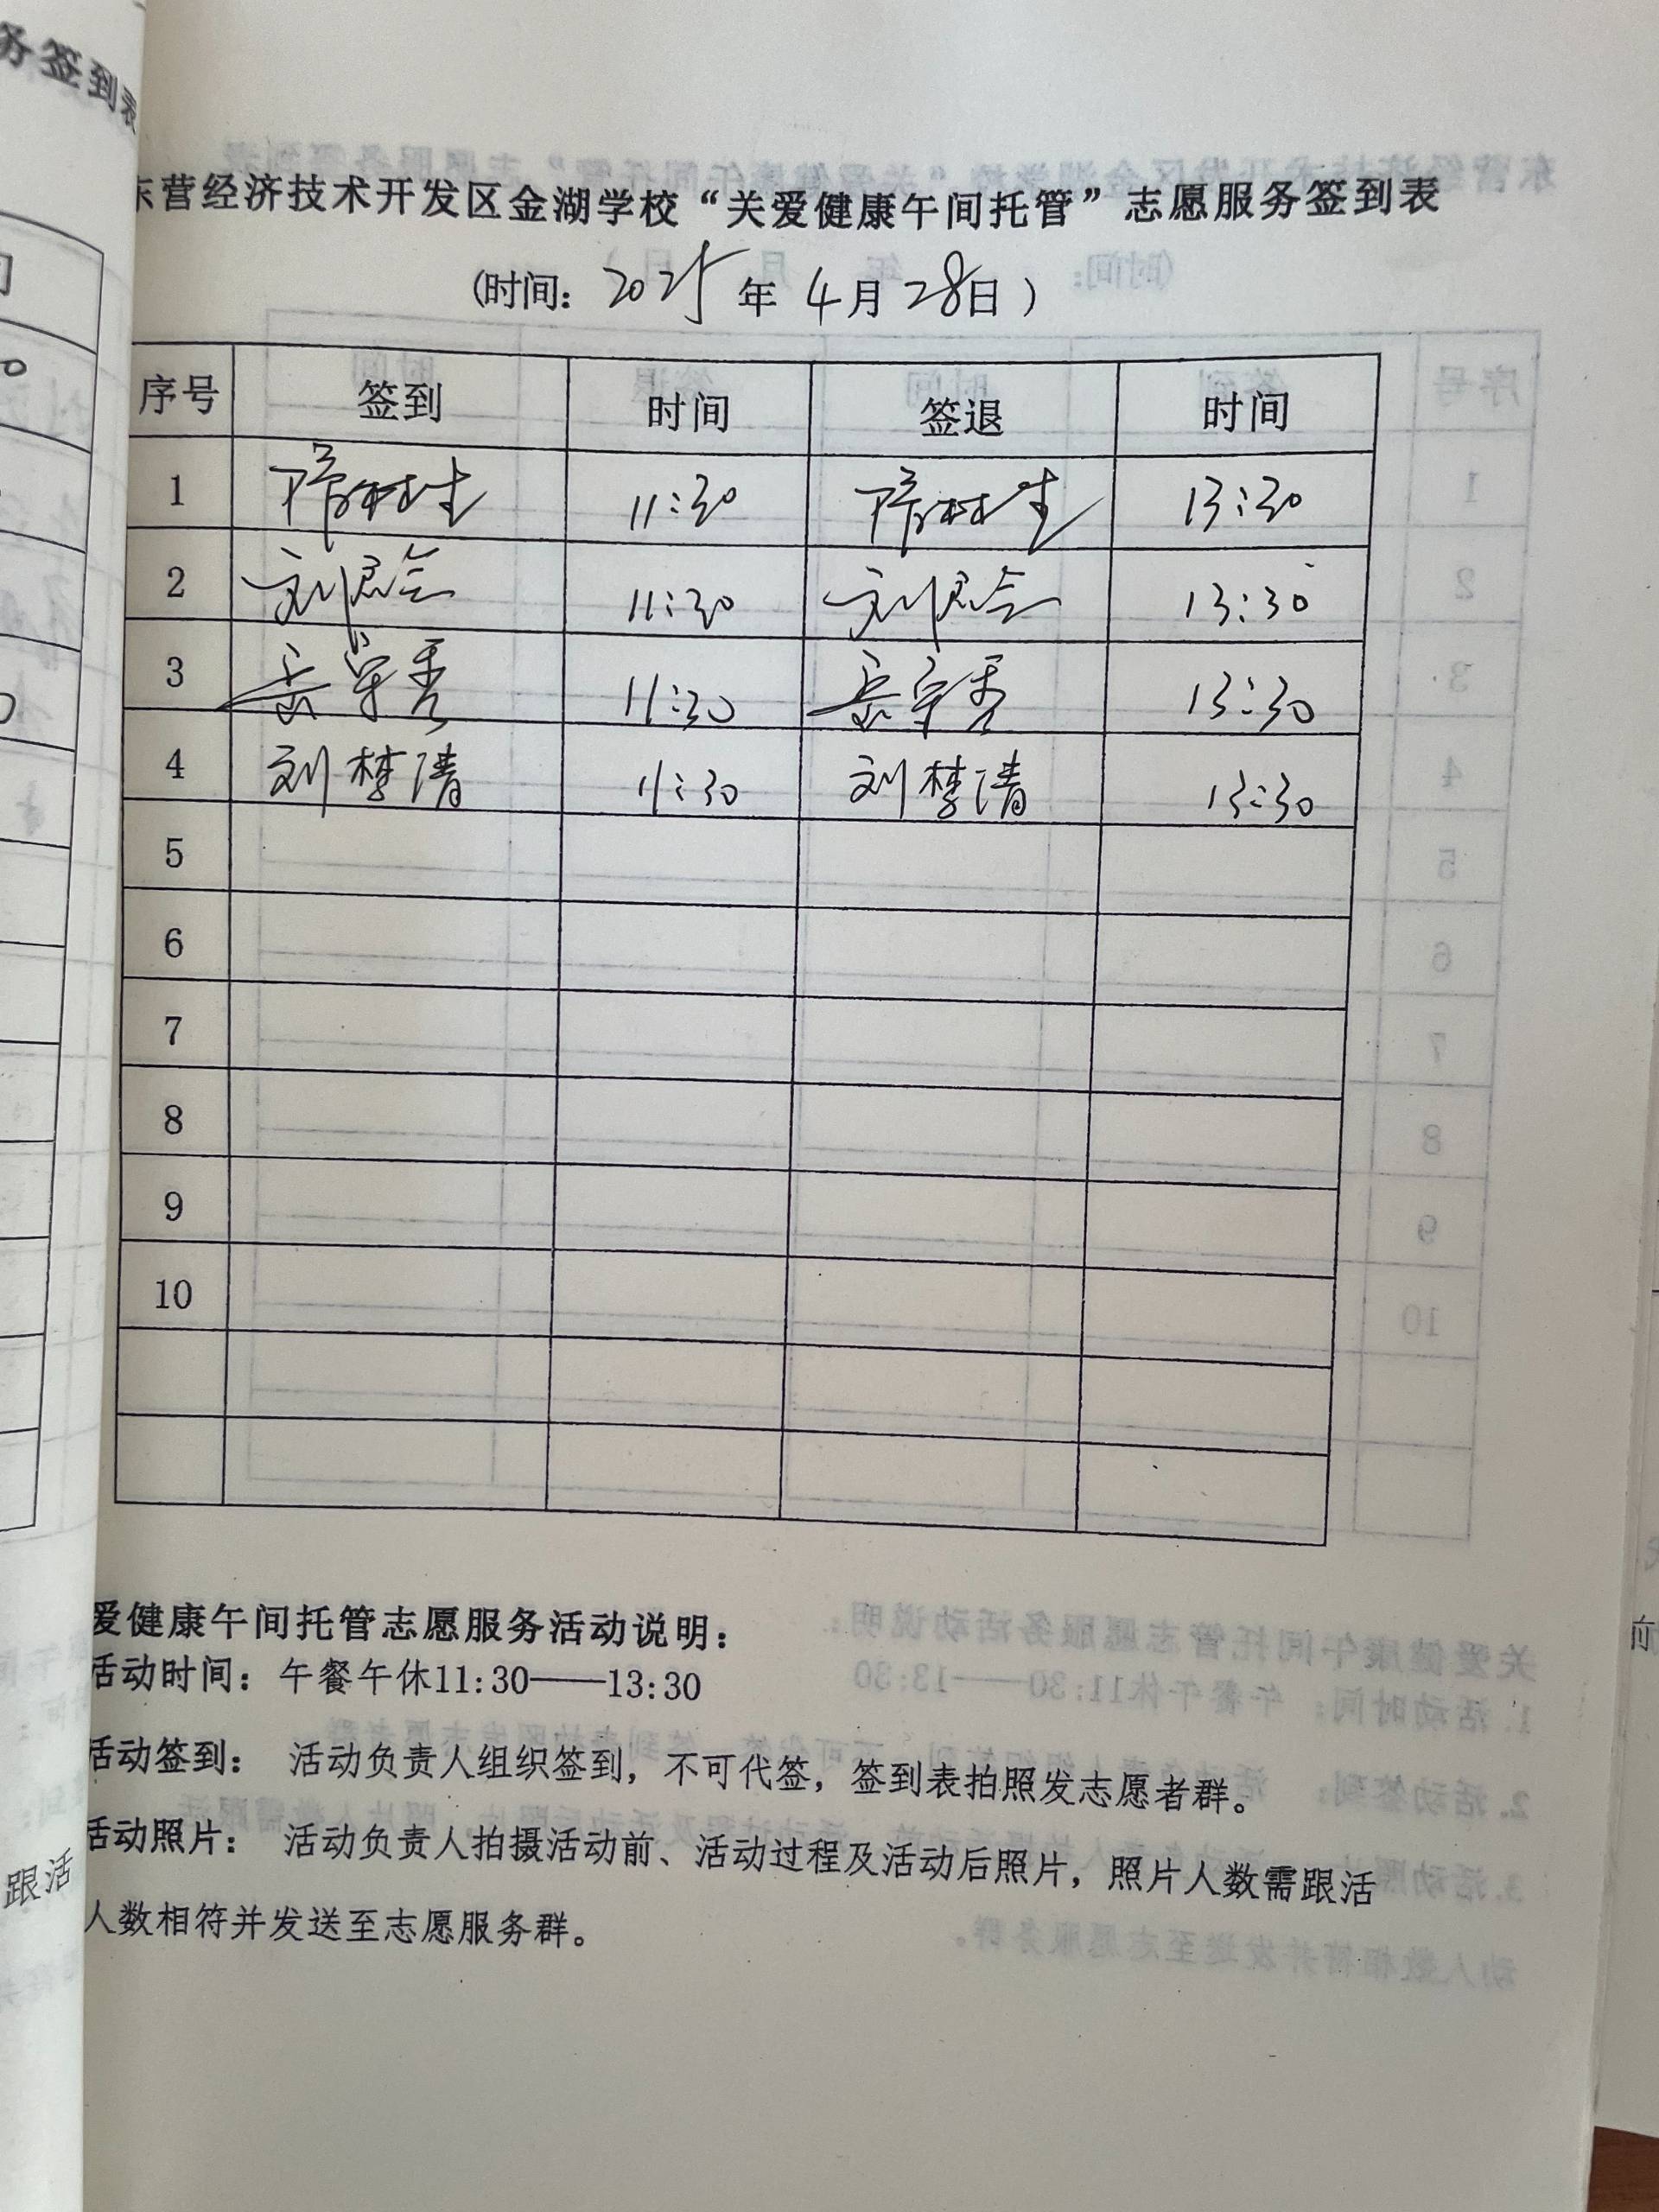 务签到表
东营经济技术开发区金湖学校“关爱健康午间托管”志愿服务签到表
(时间: 2025 年 4月 28日 )
序号 签到 时间 签退 时间
1 11:30 13:30
2 刘 11:30 刘 13:30
3 11:30 13:30
4 刘梦清 11:30 刘梦清 13:30
5
6
7
8
9
10
爱健康午间托管志愿服务活动说明:
活动时间: 午餐午休11:30——13:30
活动签到: 活动负责人组织签到, 不可代签, 签到表拍照发志愿者群。
活动照片: 活动负责人拍摄活动前、活动过程及活动后照片, 照片人数需跟活
人数相符并发送至志愿服务群。
跟活
前